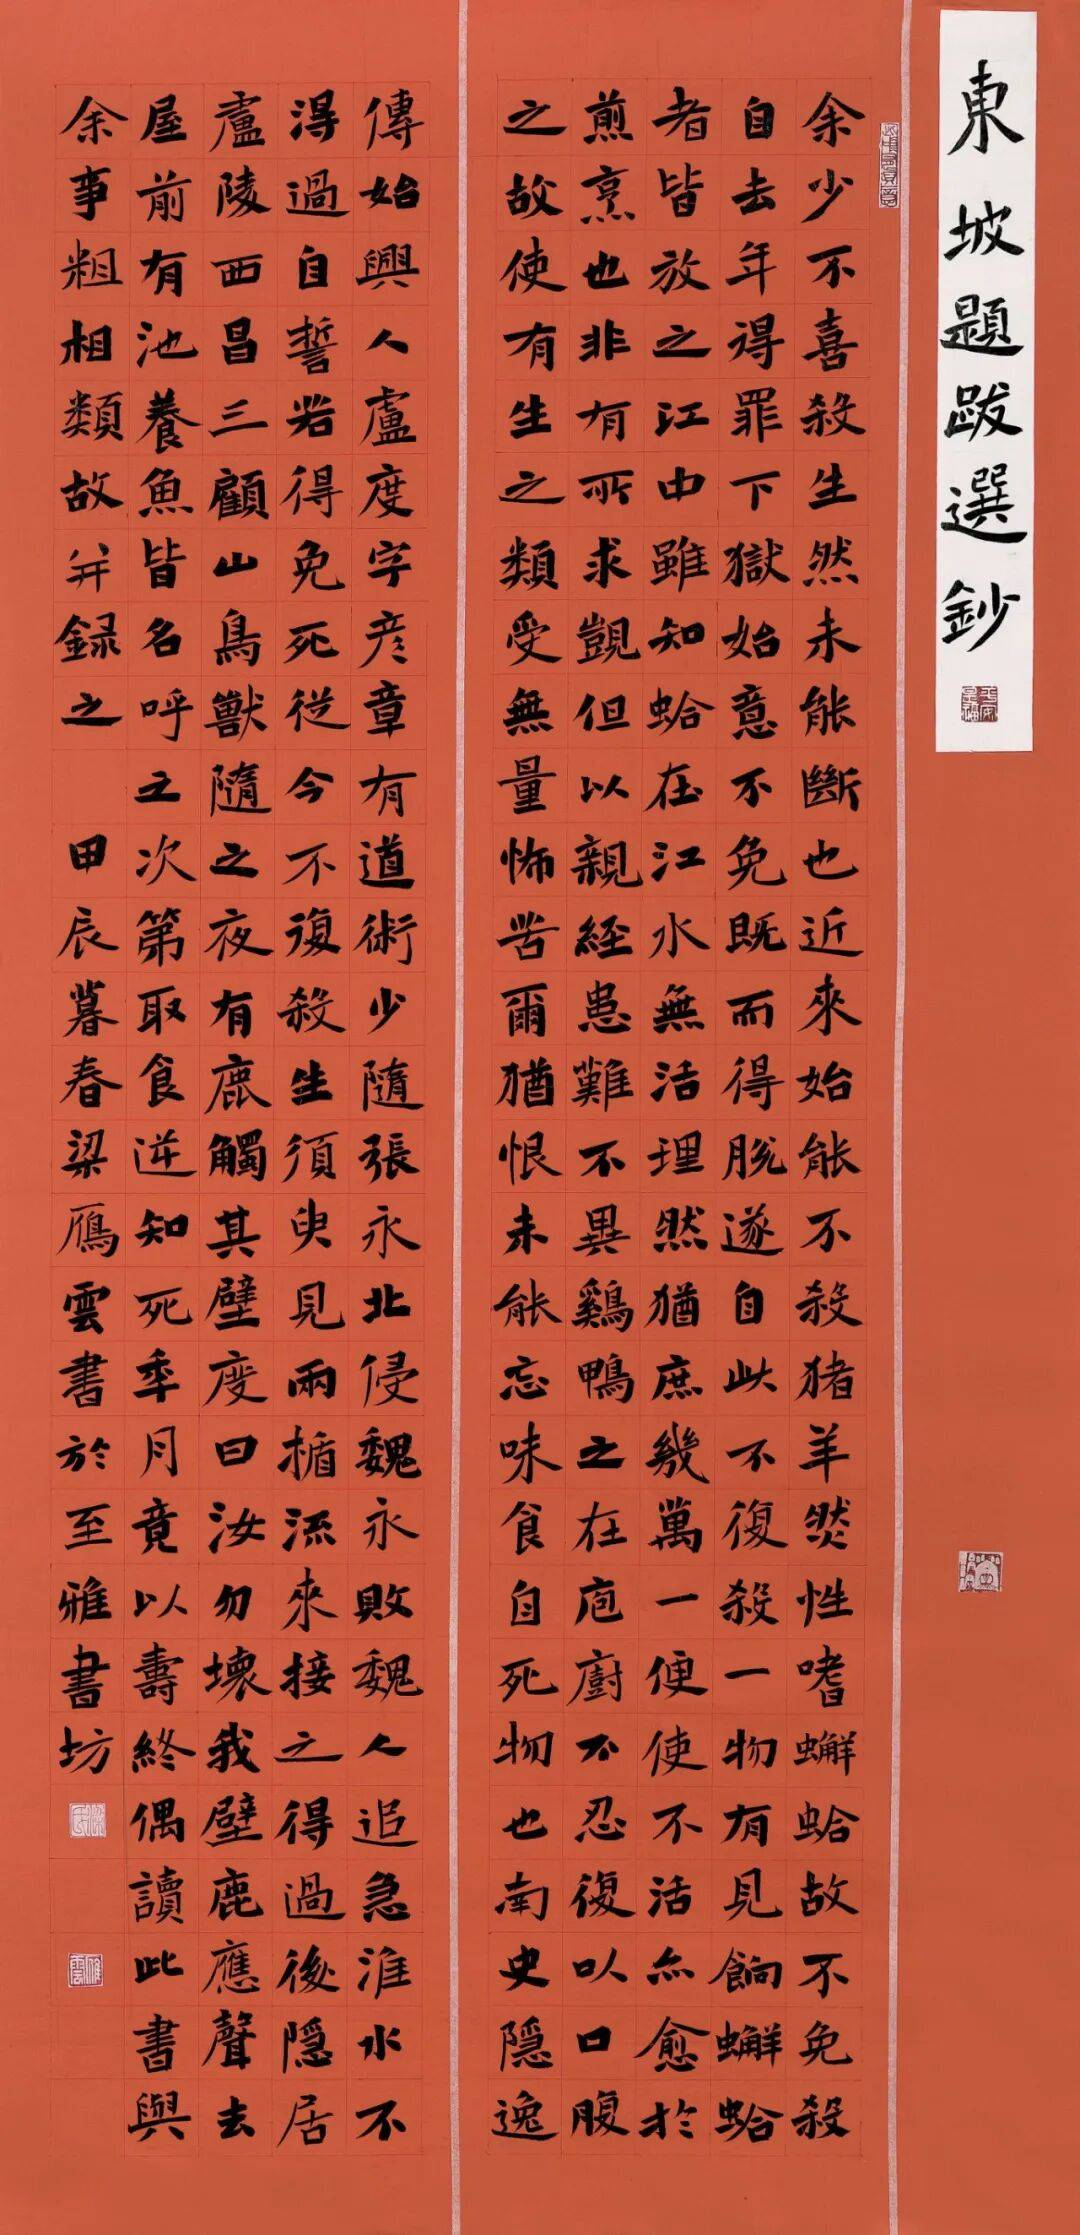 東坡題跋選鈔
余少不喜殺生然未能斷也近來始能不殺猪羊然性嗜蠏蛤故不免殺
自去年得罪下獄始意不免既而得脫遂自此不復殺一物有見餉蠏蛤
者皆放之江中雖知蛤在江水無活理然猶庶幾萬一便使不活亦愈於
煎烹也非有所求覬但以親經患難不異鷄鴨之在庖廚不忍復以口腹
之故使有生之類受無量怖苦爾猶恨未能忘味食自死物也南史隱逸
傳始興人盧度字彦章有道術少隨張永北侵魏永敗魏人追急淮水不
得過自誓若得免死從今不復殺生須臾見兩楯流來接之得過後隱居
廬陵西昌三顧山鳥獸隨之夜有鹿觸其壁度曰汝勿壞我壁鹿應聲去
屋前有池養魚皆名呼之次第取食逆知死年月竟以壽終偶讀此書與
余事粗相類故并録之 甲辰暮春梁鴈雲書於至雅書坊